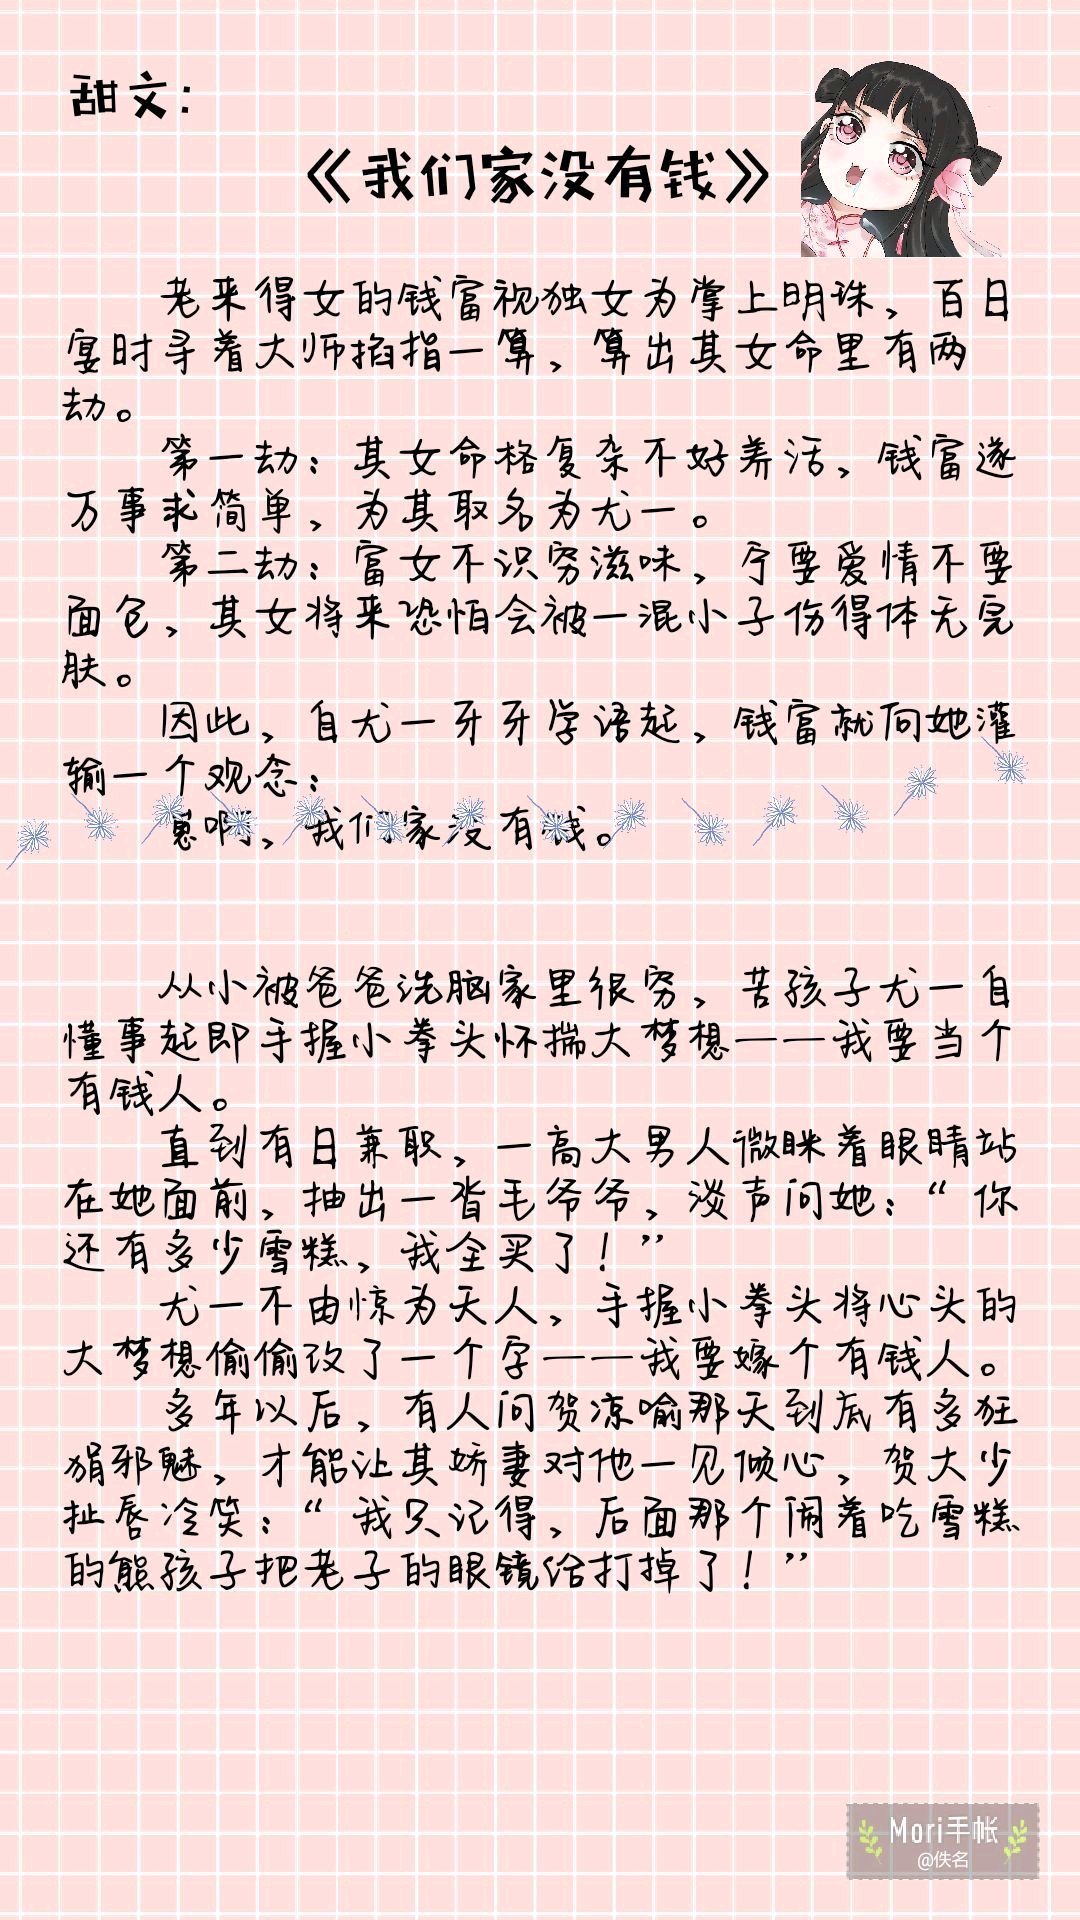 甜文：
《我们家没有钱》
老来得女的钱富视独女为掌上明珠，百日
宴时寻着大师掐指一算，算出其女命里有两
劫。
第一劫：其女命格复杂不好养活，钱富遂
万事求简单，为其取名为尤一。
第二劫：富女不识穷滋味，宁要爱情不要
面包，其女将来恐怕会被一混小子伤得体无完
肤。
因此，自尤一牙牙学语起，钱富就向她灌
输一个观念：
崽啊，我们家没有钱。
从小被爸爸洗脑家里很穷，苦孩子尤一自
懂事起即手握小拳头怀揣大梦想——我要当个
有钱人。
直到有日兼职，一高大男人微眯着眼睛站
在她面前，抽出一沓毛爷爷，淡声问她：“你
还有多少雪糕，我全买了！”
尤一不由惊为天人，手握小拳头将心头的
大梦想偷偷改了一个字——我要嫁个有钱人。
多年以后，有人问贺凉喻那天到底有多狂
狷邪魅，才能让其娇妻对他一见倾心，贺大少
扯唇冷笑：“我只记得，后面那个闹着吃雪糕
的熊孩子把老子的眼镜给打掉了！”
Mori手帐
@佚名